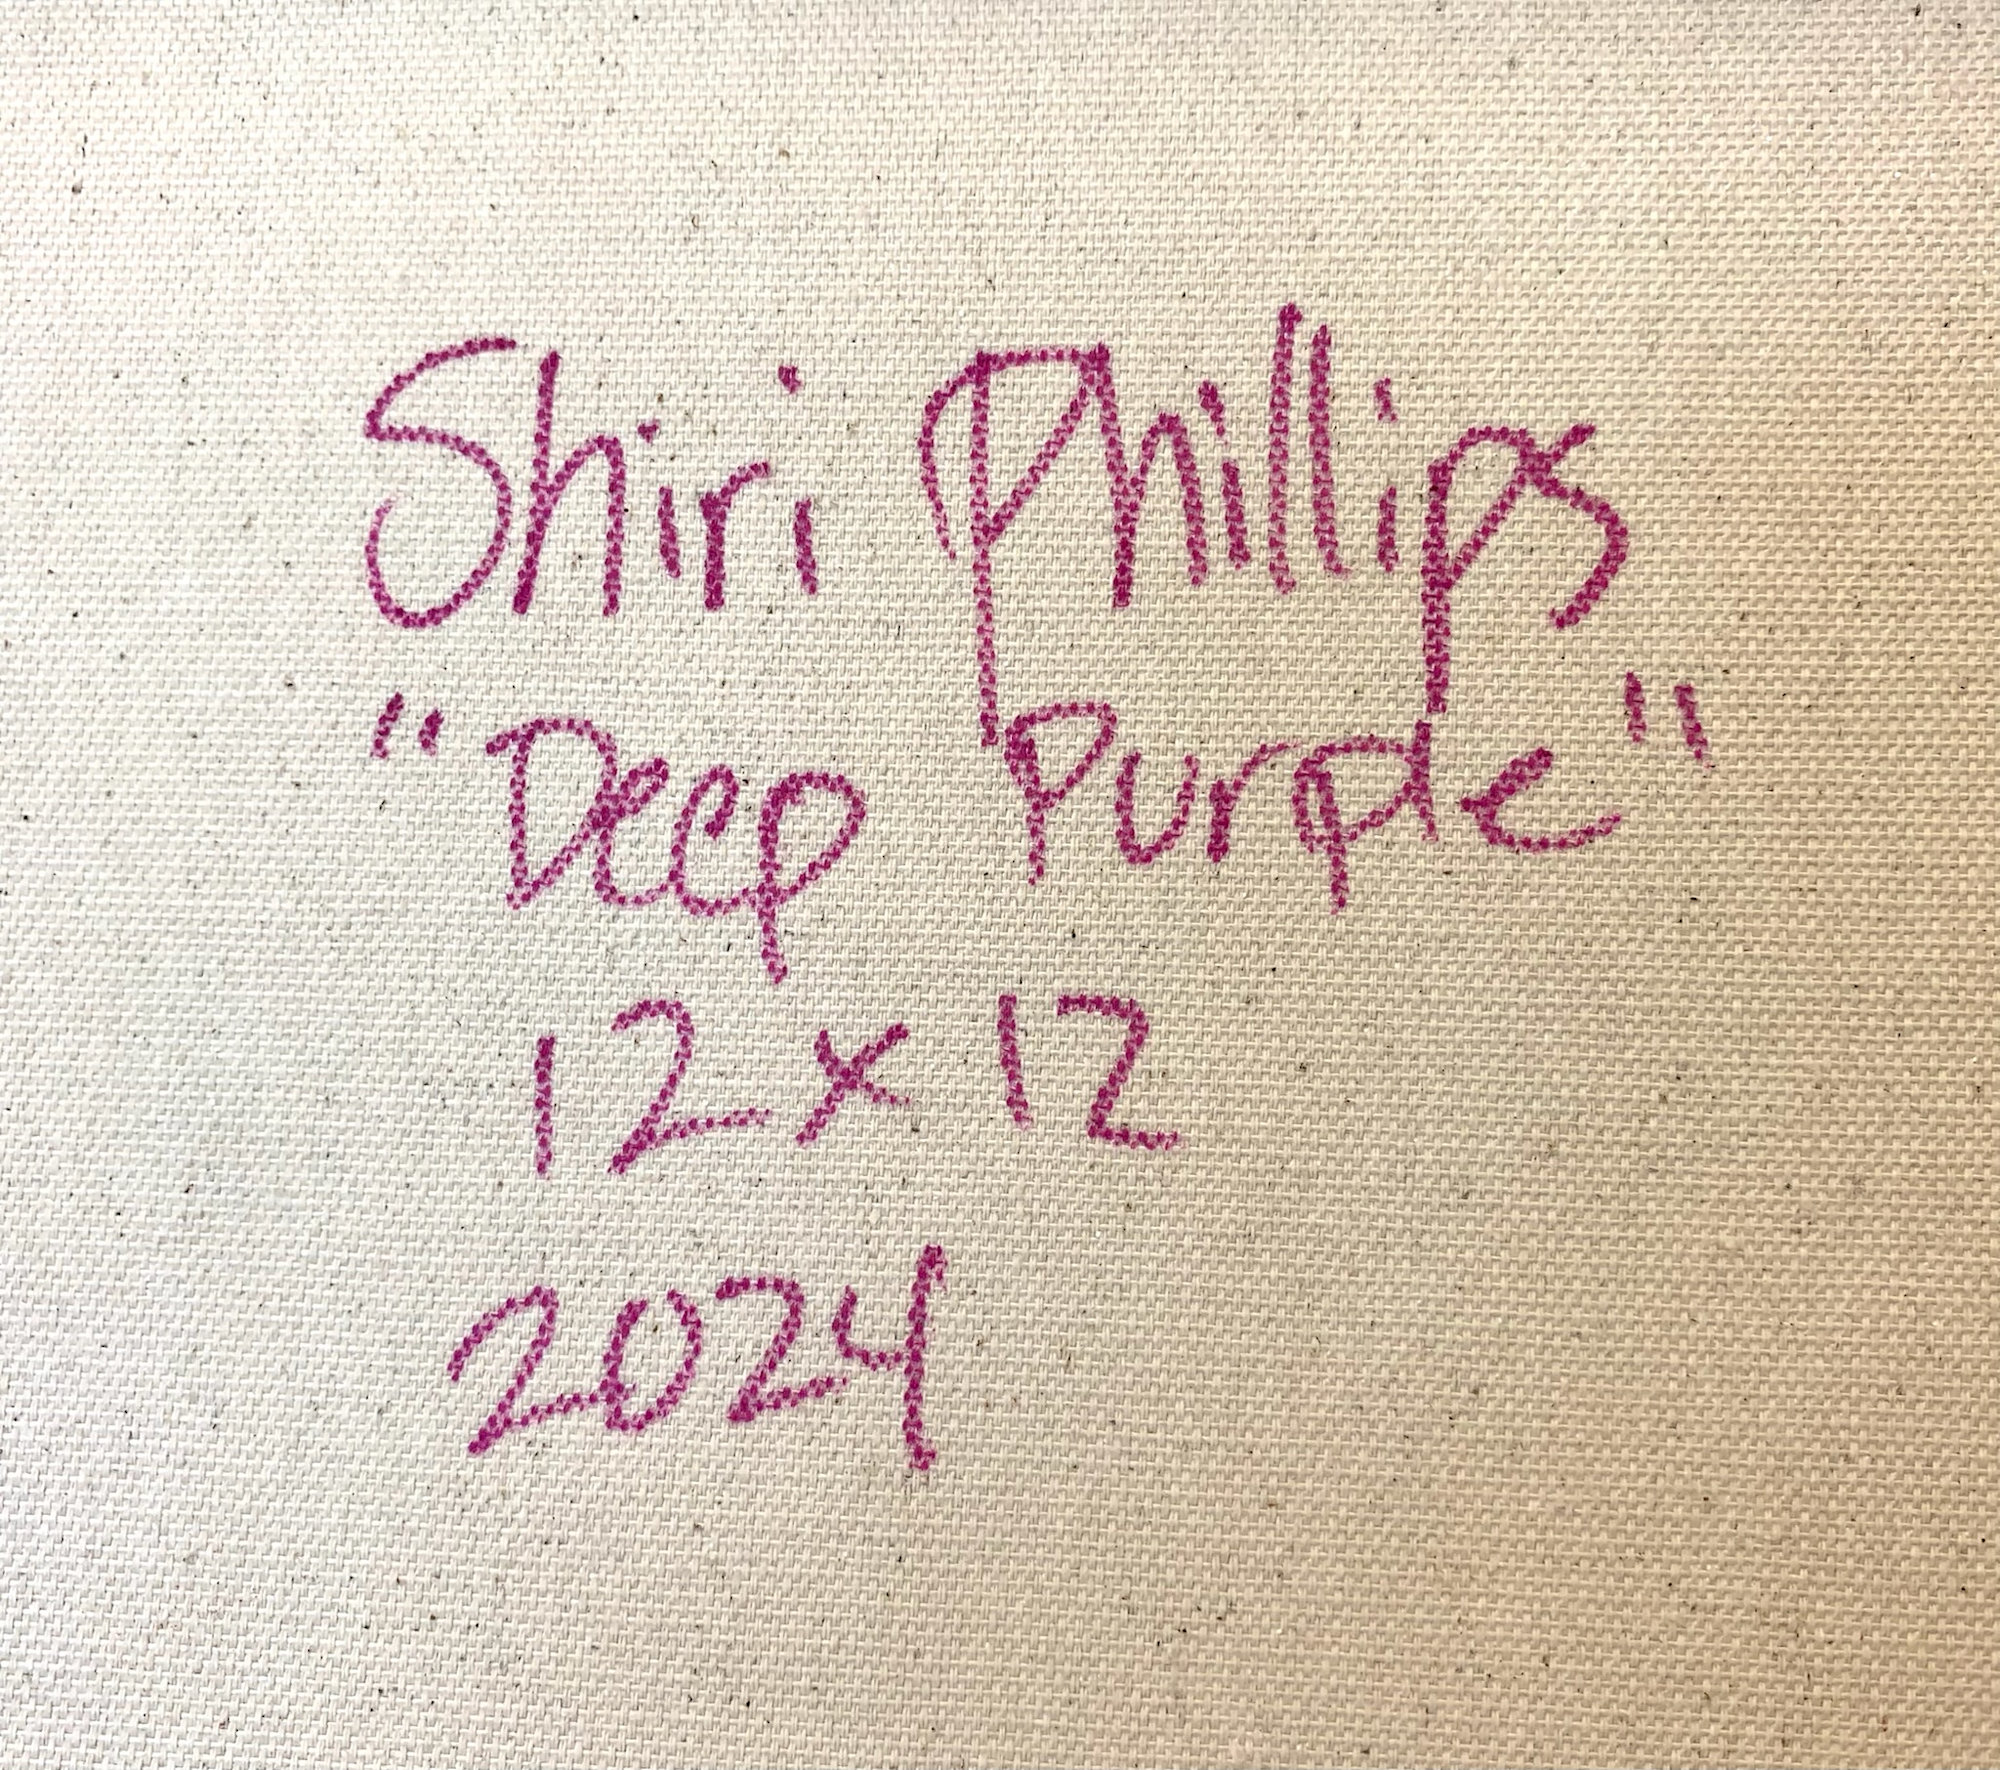 Shiri Phillips
"Deep Purple"
12 x 12
2024